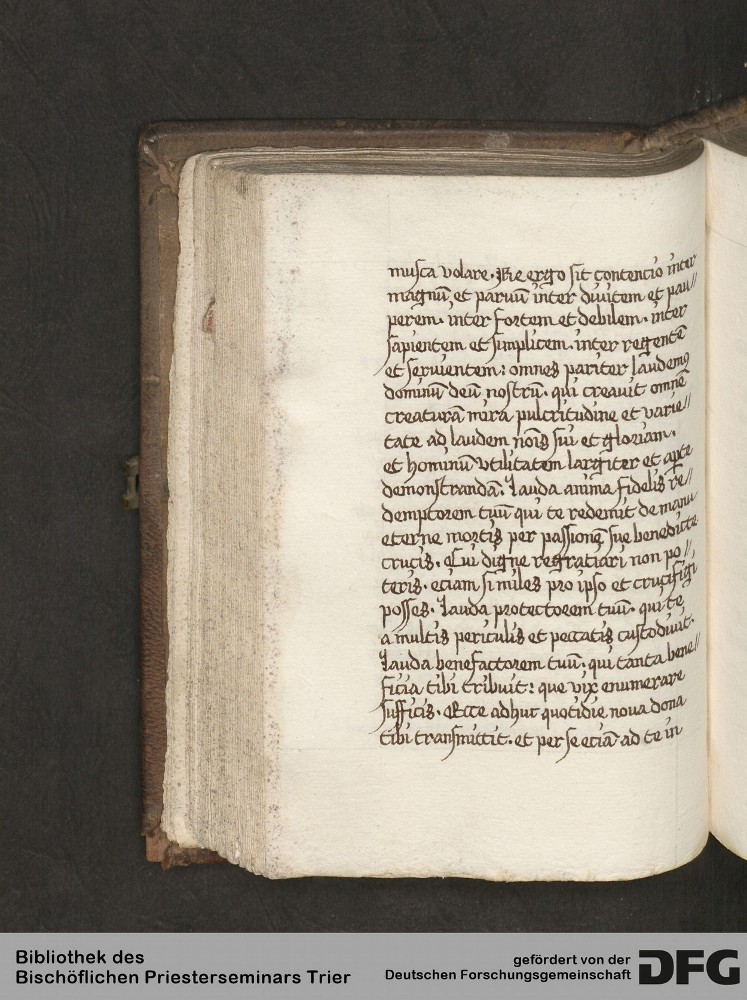 musca volare. Ne ergo sit contencio inter
magnū et paruū inter diuitem et pau//
perem. inter fortem et debilem. inter
sapientem et simplicem. inter regentē
et seruientem: omnes pariter laudemꝰ
dominū deū nostrū. qui creauit omnē
creaturā mira pulcritudine et varie//
tate ad laudem nōis sui et gloriam.
et hominū vtilitatem largiter et aꝑte
demonstrandā. Lauda anima fidelis re//
demptorem tuū qui te redemit de manu
eterne mortis per passionē sue benedicte
crucis. Cui digne regratiari non po//
teris. eciam si miles pro ipso et crucifigi
posses. Lauda protectorem tuū. qui te
a multis periculis et peccatis custodiuit.
Lauda benefactorem tuū. qui tanta bene//
ficia tibi tribuit: que vix enumerare
sufficis. Ecce adhuc quotidie noua dona
tibi transmittit. et per se eciā ad te in
Bibliothek des
Bischöflichen Priesterseminars Trier
gefördert von der
Deutschen Forschungsgemeinschaft
DFG